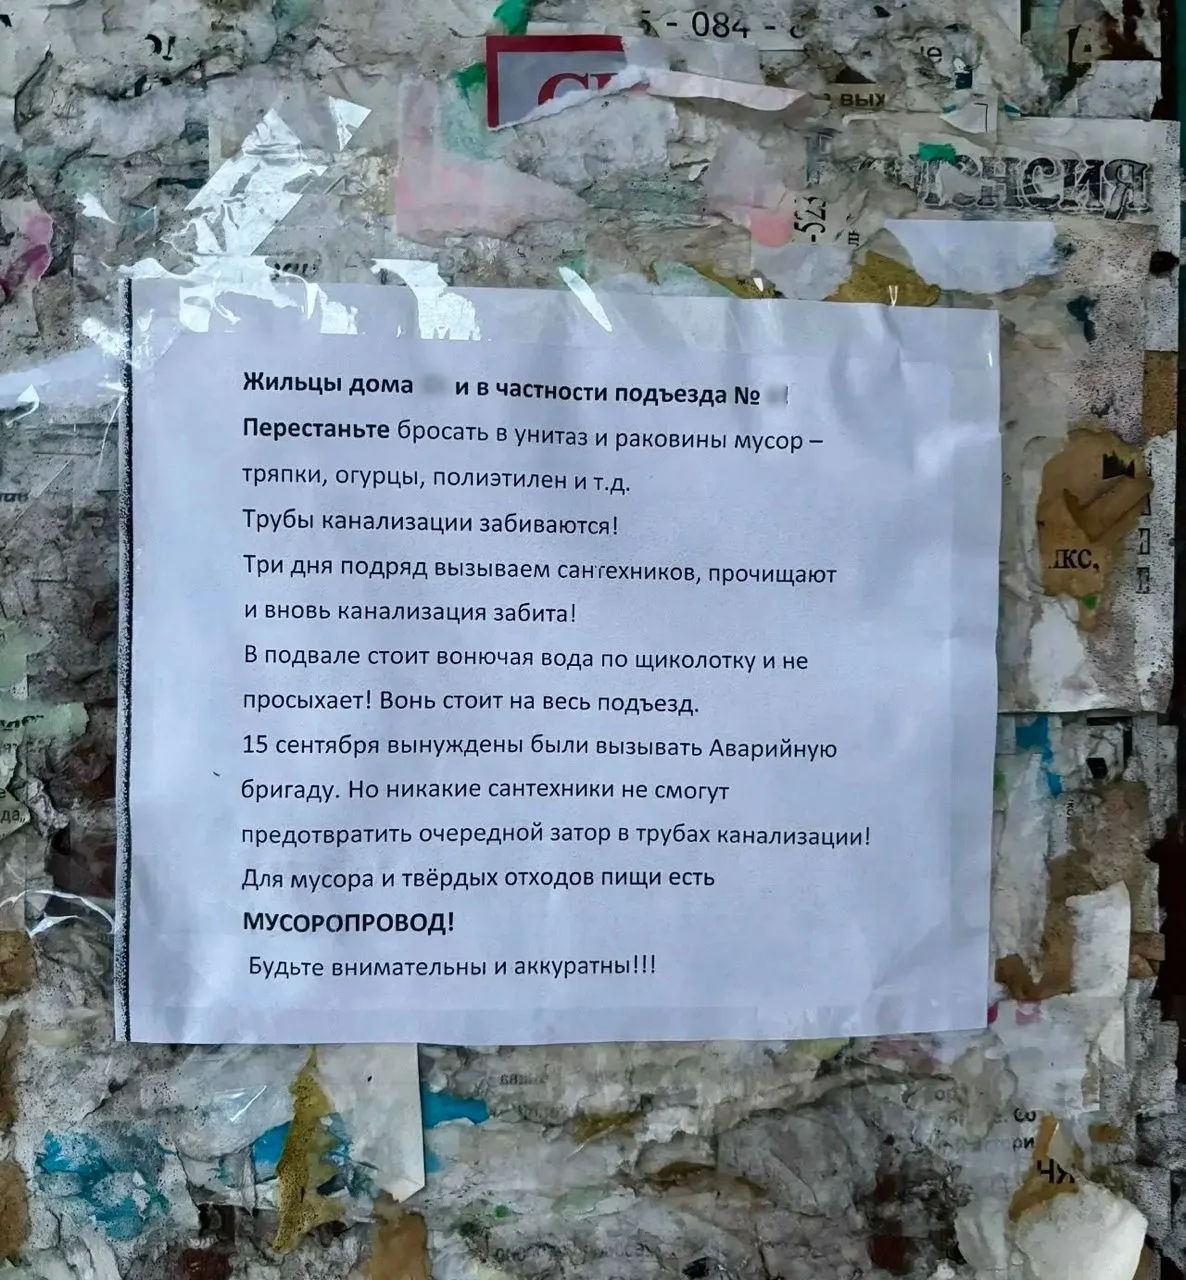 - 084 -
вых
-523
Жильцы дома и в частности подъезда №
Перестаньте бросать в унитаз и раковины мусор –
тряпки, огурцы, полиэтилен и т.д.
Трубы канализации забиваются!
Три дня подряд вызываем сантехников, прочищают
и вновь канализация забита!
В подвале стоит вонючая вода по щиколотку и не
просыхает! Вонь стоит на весь подъезд.
15 сентября вынуждены были вызывать Аварийную
бригаду. Но никакие сантехники не смогут
предотвратить очередной затор в трубах канализации!
Для мусора и твёрдых отходов пищи есть
МУСОРОПРОВОД!
Будьте внимательны и аккуратны!!!